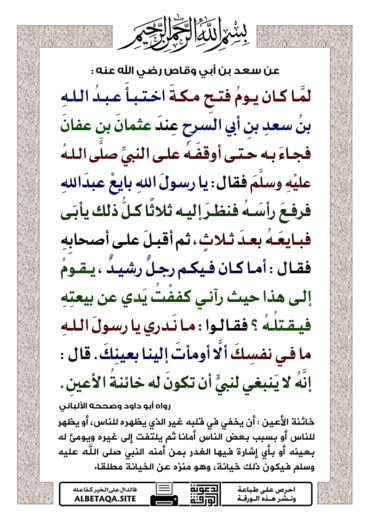 بسم الله الرحمن الرحيم
عن سعد بن أبي وقاص رضي الله عنه :
لمَّا كان يومُ فتحِ مكةَ اختبأَ عبدُ اللهِ
بنُ سعدِ بنِ أبي السرحِ عندَ عثمانَ بنِ عفانَ
فجاءَ به حتى أوقفَهُ على النبيِّ صلَّى اللهُ
عليْهِ وسلَّمَ فقال : يا رسولَ اللهِ بايعْ عبدَاللهِ
فرفعَ رأسَهُ فنظرَ إليه ثلاثًا كلُّ ذلك يأبَى
فبايعَهُ بعدَ ثلاثٍ ، ثم أقبلَ على أصحابِهِ
فقال : أما كان فيكم رجلٌ رشيدٌ ، يقومُ
إلى هذا حيث رآني كففْتُ يَدي عن بيعتِهِ
فيقتلُهُ ؟ فقالوا : ما نَدري يا رسولَ اللهِ
ما في نفسِكَ ألَّا أومأتَ إلينا بعينِكَ . قال :
إنَّهُ لا يَنبغي لنبيٍّ أن تكونَ له خائنةُ الأعينِ .
رواه أبو داود وصححه الألباني
خائنة الأعين : أن يخفي في قلبه غير الذي يظهره للناس، أو يظهر
للناس أو بسبب بعض الناس أمانا ثم يلتفت إلى غيره ويومئ له
بعينه أو بأي إشارة فيها الغدر بمن أمنه النبي صلى الله عليه
وسلم فيكون ذلك خيانة، وهو منزه عن الخيانة مطلقا.
احرص على طباعة
ونشر هذه الورقة
دعوية
الورقة
فالدال على الخير كفاعله
ALBETAQA.SITE